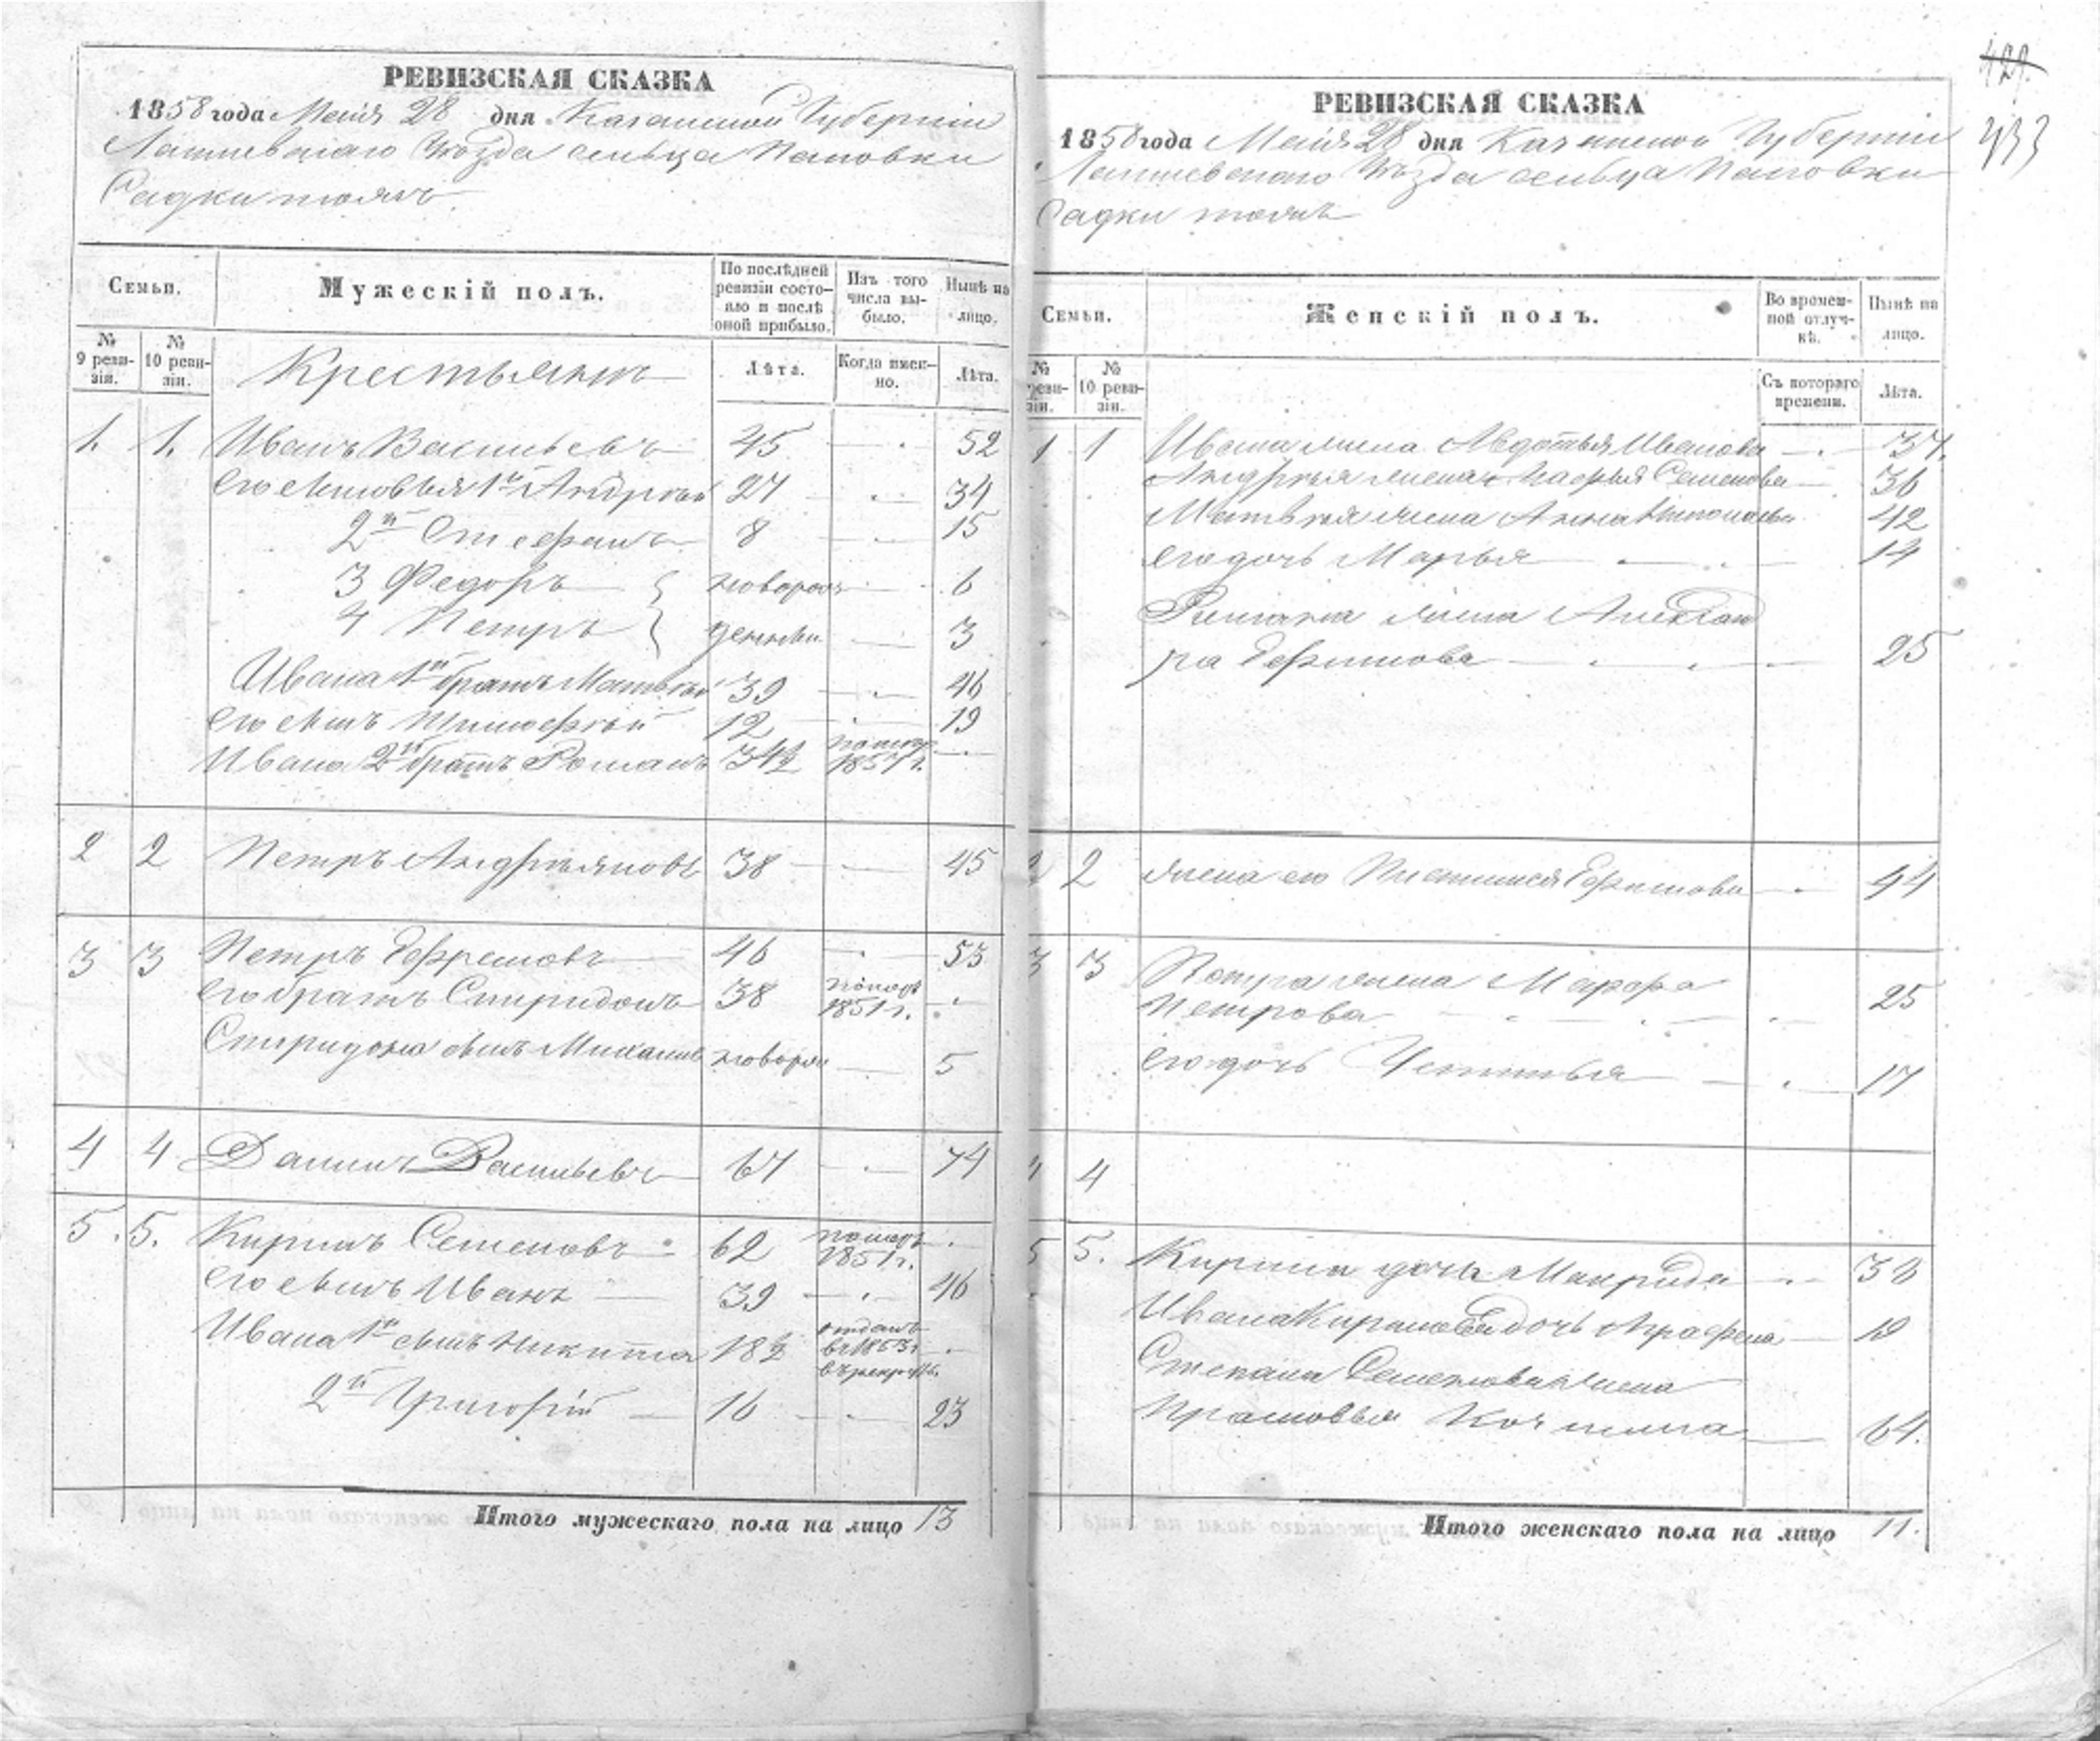 РЕВИЗСКАЯ СКАЗКА
1858 года Маія 28 дня Казанской Губерніи
Лаишевскаго Уѣзда сельца Поповки
Садки тожъ
Семьи.
Мужескій полъ.
По послѣдней ревизіи состояло и послѣ оной прибыло.
Изъ того числа выбыло.
Нынѣ на лицо.
№ 9 ревизіи.
№ 10 ревизіи.
Крестьянъ
Лѣта.
Когда именно.
Лѣта.
1. 1. Иванъ Васильевъ 45 52
Его сыновья 1й Андрей 27 34
2й Стефанъ 8 15
3 Федоръ новорож 6
4 Петръ денные 3
Ивана 1й братъ Матвей 39 46
Его сынъ Тимофей 12 19
Ивана 2й братъ Романъ 34½ помер 1857 г.
2 2 Петръ Андреяновъ 38 45
3 3 Петръ Ефремовъ 46 53
Его братъ Спиридонъ 38 помер 1851 г.
Спиридона сынъ Михаилъ новорож 5
4 4 Данилъ Васильевъ 67 74
5. 5. Кирилъ Семеновъ 62 померъ 1851 г.
Его сынъ Иванъ 39 46
Ивана 1й сынъ Никита 18½ отданъ въ 1853 г. въ рекруты.
2й Григорій 16 23
Итого мужескаго пола на лицо 13
429.
433
РЕВИЗСКАЯ СКАЗКА
1858 года Маія 28 дня Казанской Губерніи
Лаишевскаго Уѣзда сельца Поповки
Садки тожъ
Семьи.
Женскій полъ.
Во временной отлучкѣ.
Нынѣ на лицо.
№ ревизіи.
№ 10 ревизіи.
Съ котораго времени.
Лѣта.
1 1 Ивана жена Авдотья Иванова 37.
Андрея жена Семенова 36
Матвея жена Анна 42
Его дочь Марья 14
Романа жена Александ
ра Ефимова 25
2 2 Жена его Ефимова 44
3 3 Петра жена Марфа
Петрова 25
Его дочь Устинья 17
4 4
5 5. Кирила дочь Макрида 38
Ивана Кирилова дочь Аграфена 19
Степана Семенова жена
Прасковья 64.
Итого женскаго пола на лицо 11.